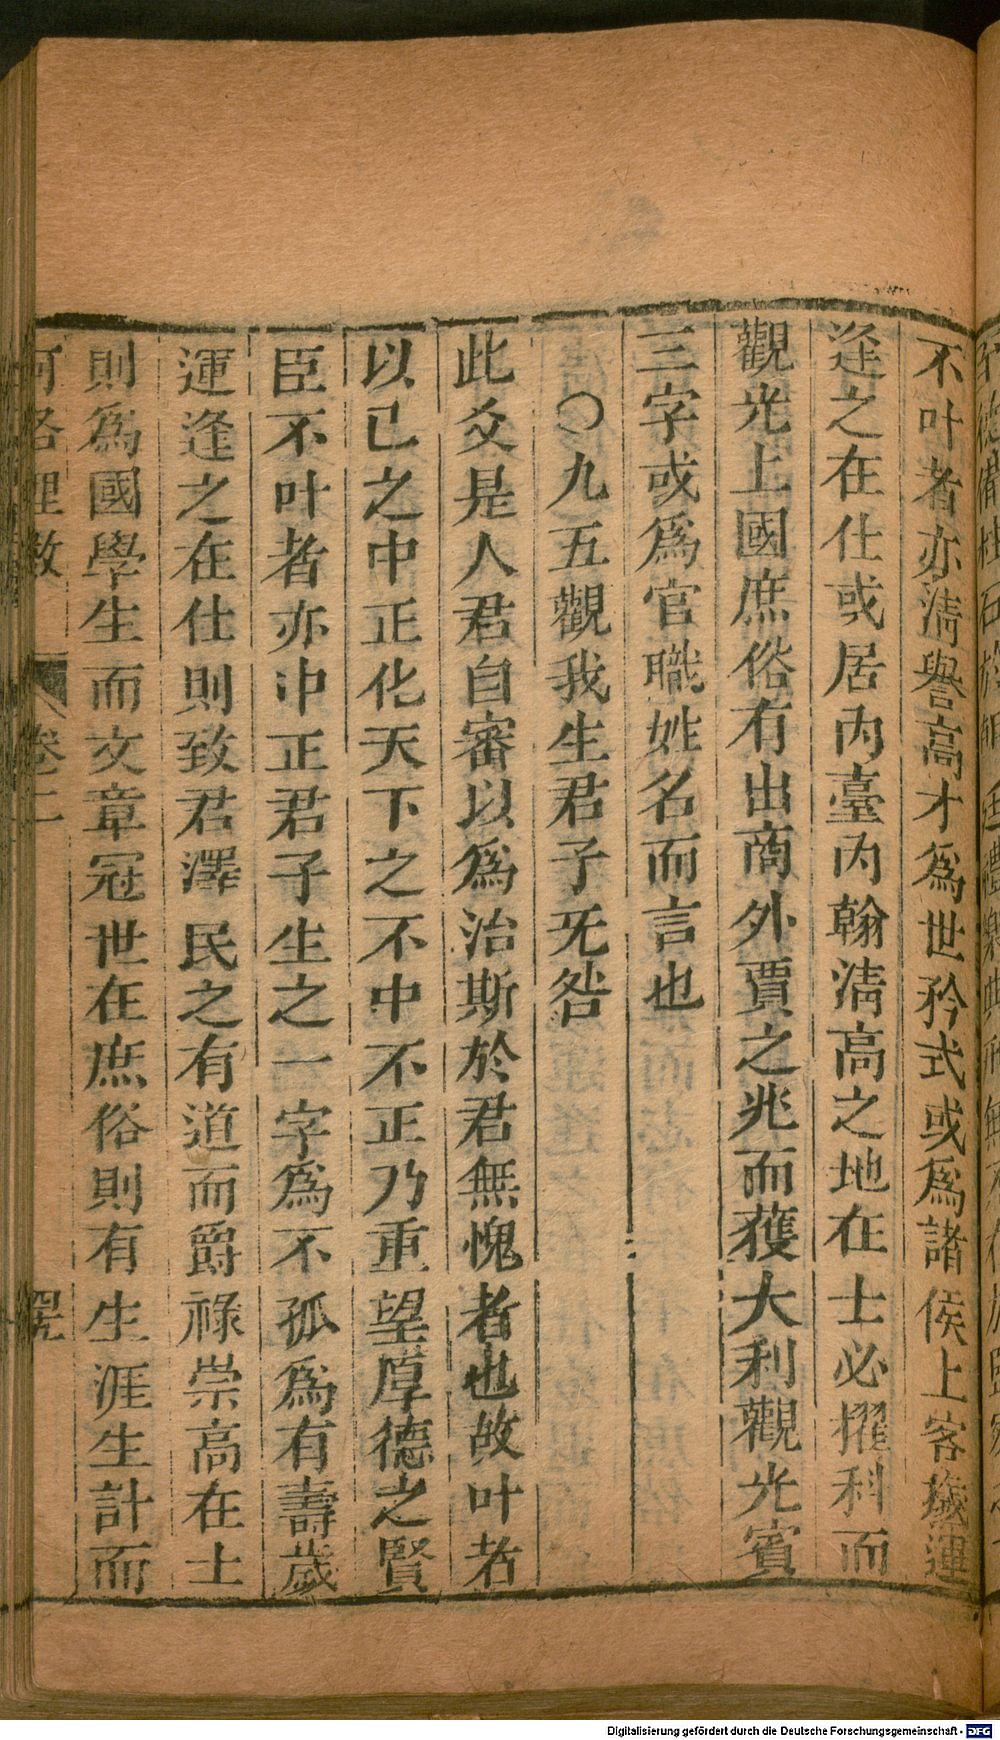 不叶者亦淸譽高才爲世矜式或爲諸侯上客歲運
逢之在仕或居內臺內翰淸高之地在士必擢科而
觀光上國庶俗有出商外賈之兆而獲大利觀光賓
三字或爲官職姓名而言也
〇九五觀我生君子旡咎
此爻是人君自審以爲治斯於君無愧者也故叶者
以已之中正化天下之不中不正乃重望厚德之賢
臣不叶者亦中正君子生之一字爲不孤爲有壽歲
運逢之在仕則致君澤民之有道而爵祿崇高在士
則爲國學生而文章冠世在庶俗則有生涯生計而
河洛理數 卷二
Digitalisierung gefördert durch die Deutsche Forschungsgemeinschaft - DFG